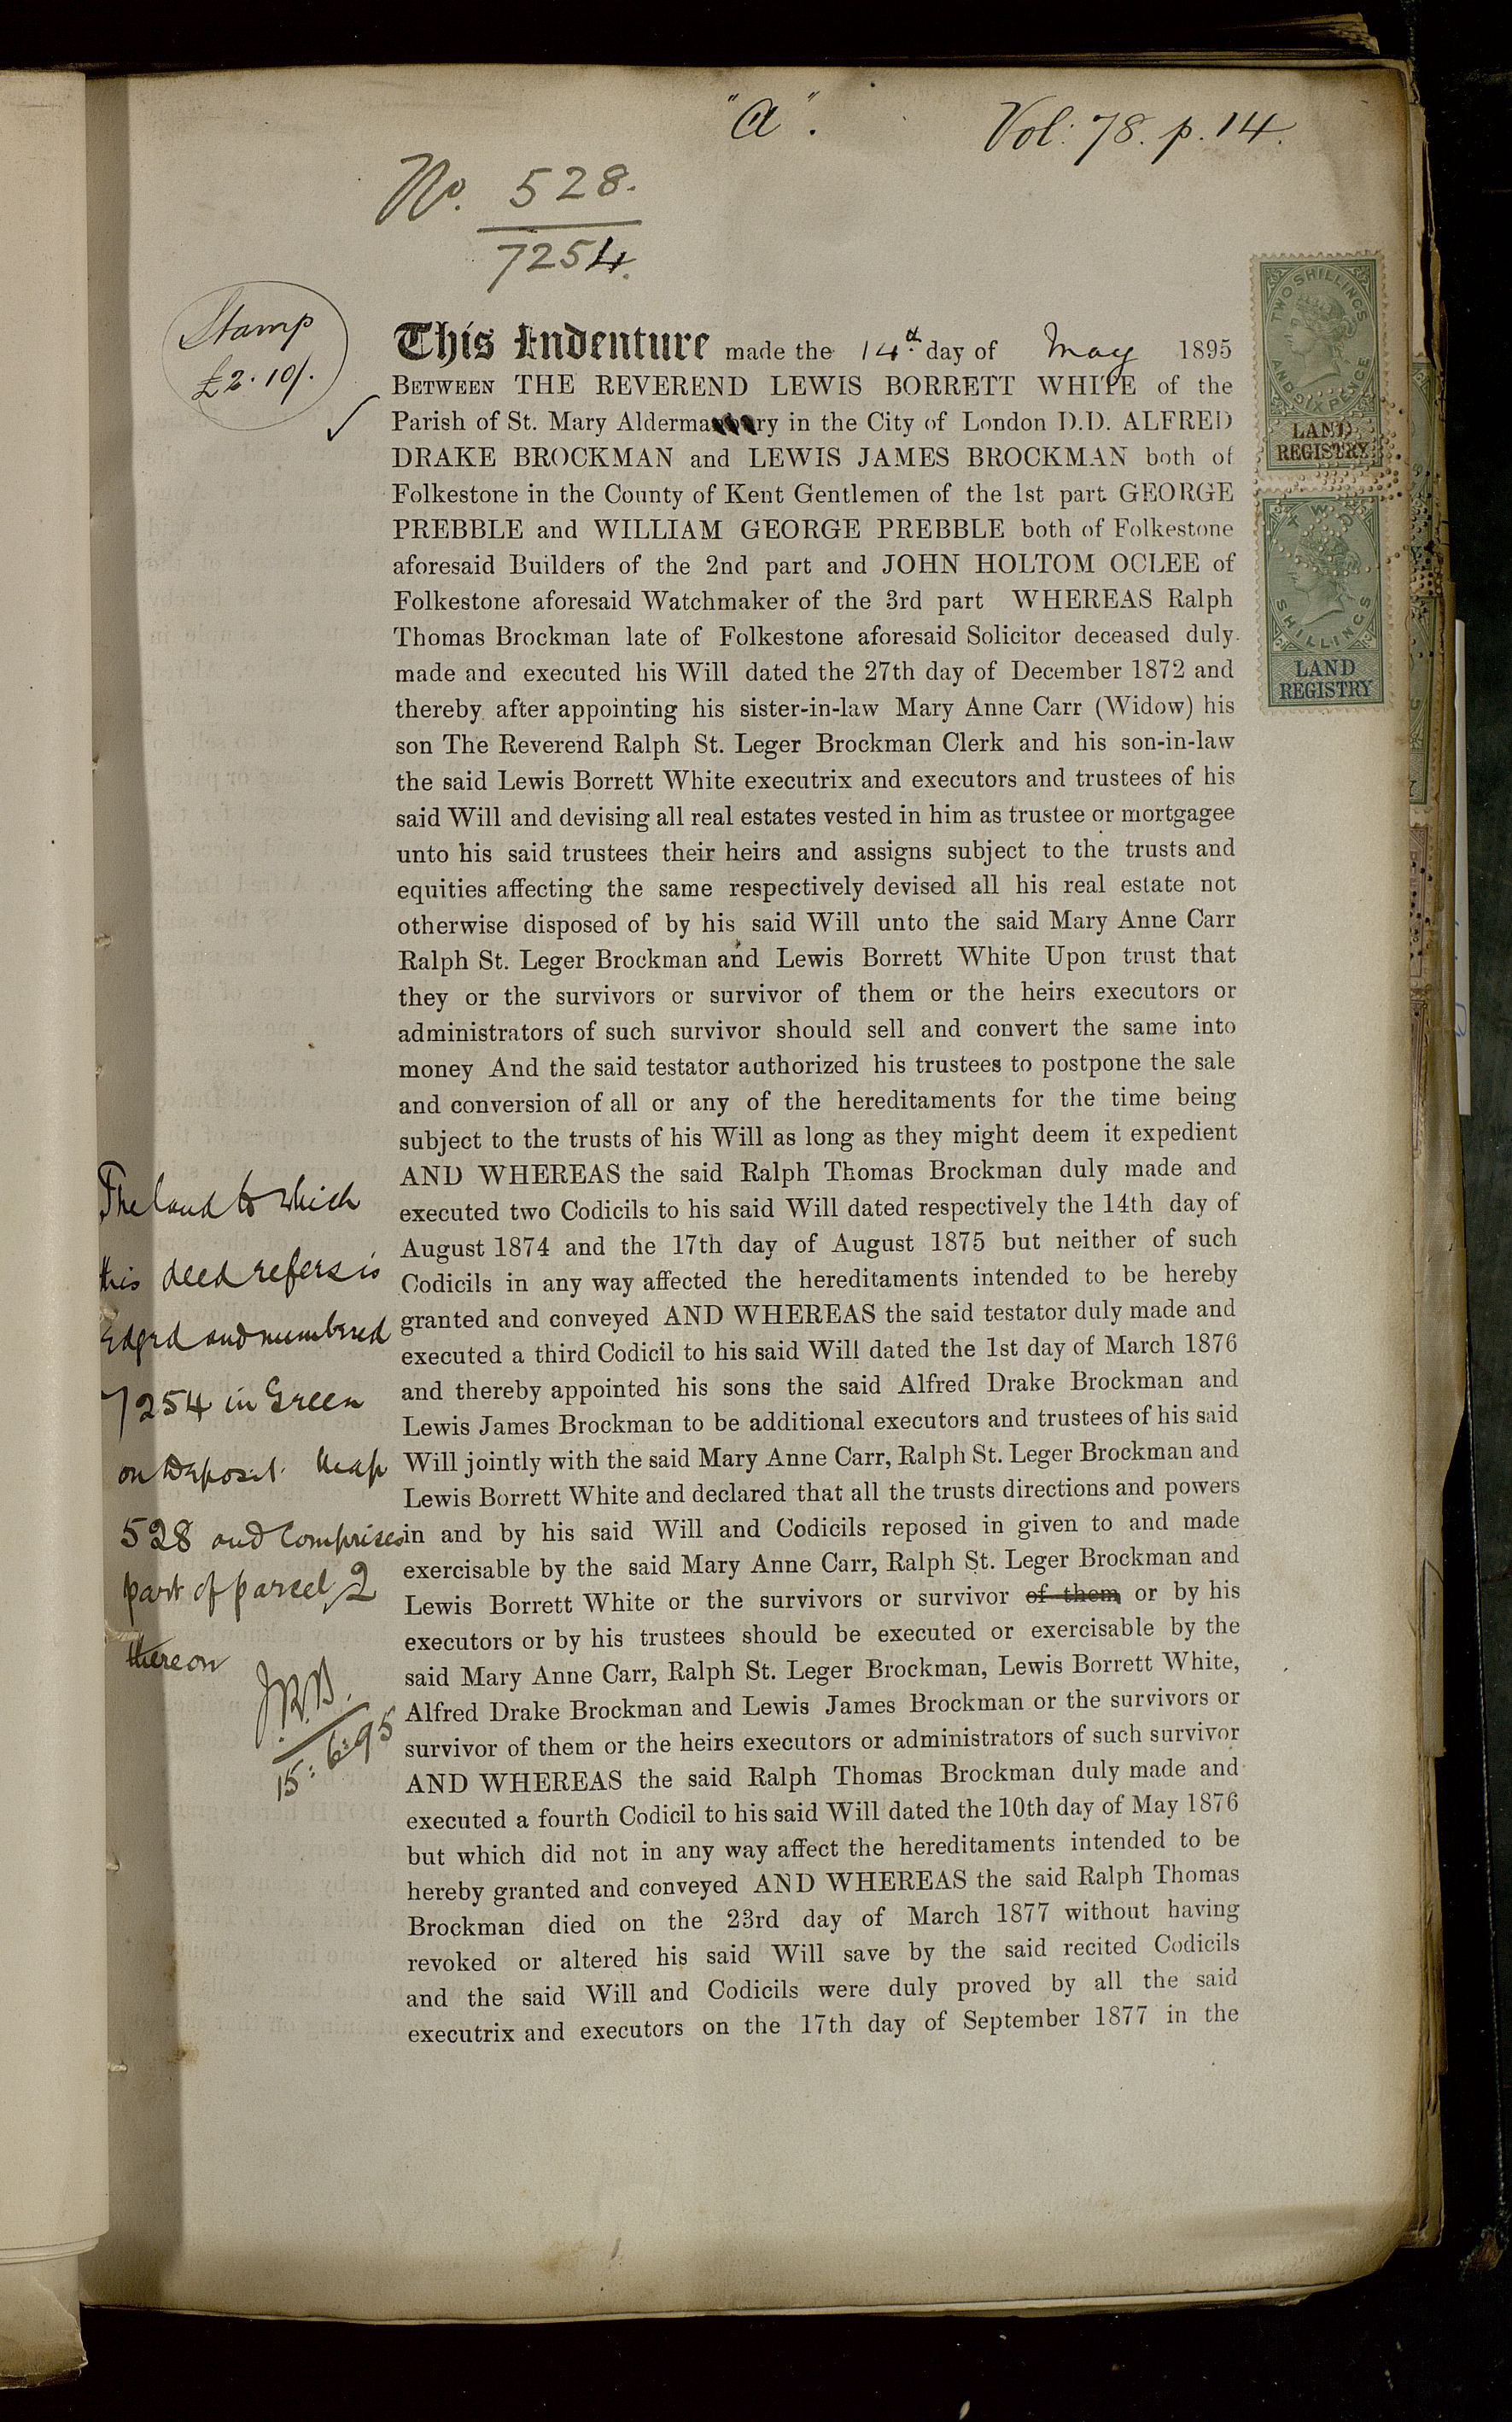 "A".
Vol: 78. p. 14.
No. 528.
7254.
Stamp
£2.10/.
This Indenture made the 14th day of May 1895
BETWEEN THE REVEREND LEWIS BORRETT WHITE of the
Parish of St. Mary Aldermanbury in the City of London D.D. ALFRED
DRAKE BROCKMAN and LEWIS JAMES BROCKMAN both of
Folkestone in the County of Kent Gentlemen of the 1st part GEORGE
PREBBLE and WILLIAM GEORGE PREBBLE both of Folkestone
aforesaid Builders of the 2nd part and JOHN HOLTOM OCLEE of
Folkestone aforesaid Watchmaker of the 3rd part WHEREAS Ralph
Thomas Brockman late of Folkestone aforesaid Solicitor deceased duly
made and executed his Will dated the 27th day of December 1872 and
thereby after appointing his sister-in-law Mary Anne Carr (Widow) his
son The Reverend Ralph St. Leger Brockman Clerk and his son-in-law
the said Lewis Borrett White executrix and executors and trustees of his
said Will and devising all real estates vested in him as trustee or mortgagee
unto his said trustees their heirs and assigns subject to the trusts and
equities affecting the same respectively devised all his real estate not
otherwise disposed of by his said Will unto the said Mary Anne Carr
Ralph St. Leger Brockman and Lewis Borrett White Upon trust that
they or the survivors or survivor of them or the heirs executors or
administrators of such survivor should sell and convert the same into
money And the said testator authorized his trustees to postpone the sale
and conversion of all or any of the hereditaments for the time being
subject to the trusts of his Will as long as they might deem it expedient
AND WHEREAS the said Ralph Thomas Brockman duly made and
executed two Codicils to his said Will dated respectively the 14th day of
August 1874 and the 17th day of August 1875 but neither of such
Codicils in any way affected the hereditaments intended to be hereby
granted and conveyed AND WHEREAS the said testator duly made and
executed a third Codicil to his said Will dated the 1st day of March 1876
and thereby appointed his sons the said Alfred Drake Brockman and
Lewis James Brockman to be additional executors and trustees of his said
Will jointly with the said Mary Anne Carr, Ralph St. Leger Brockman and
Lewis Borrett White and declared that all the trusts directions and powers
in and by his said Will and Codicils reposed in given to and made
exercisable by the said Mary Anne Carr, Ralph St. Leger Brockman and
Lewis Borrett White or the survivors or survivor of them or by his
executors or by his trustees should be executed or exercisable by the
said Mary Anne Carr, Ralph St. Leger Brockman, Lewis Borrett White,
Alfred Drake Brockman and Lewis James Brockman or the survivors or
survivor of them or the heirs executors or administrators of such survivor
AND WHEREAS the said Ralph Thomas Brockman duly made and
executed a fourth Codicil to his said Will dated the 10th day of May 1876
but which did not in any way affect the hereditaments intended to be
hereby granted and conveyed AND WHEREAS the said Ralph Thomas
Brockman died on the 23rd day of March 1877 without having
revoked or altered his said Will save by the said recited Codicils
and the said Will and Codicils were duly proved by all the said
executrix and executors on the 17th day of September 1877 in the
The land to which
this deed refers is
Edged and numbered
7254 in Green
on Deposit Map
528 and Comprises
part of parcel 2
thereon
15:6:95
TWO SHILLINGS
AND SIXPENCE
LAND
REGISTRY
TWO
SHILLINGS
LAND
REGISTRY